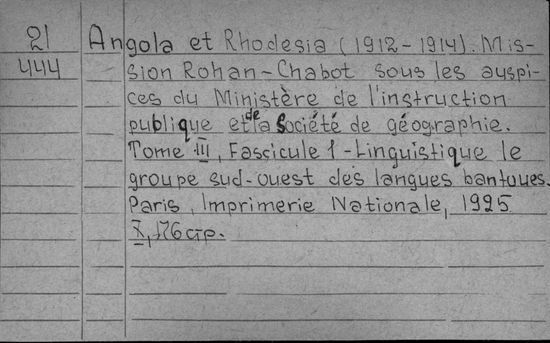 21 Angola et Rhodesia (1912-1914). Mis-
444 sion Rohan-Chabot sous les auspi-
ces du Ministère de l'instruction
publique et de la Société de géographie.
Tome III, Fascicule 1 - Linguistique le
groupe sud-ouest des langues bantoues.
Paris, Imprimerie Nationale, 1925
X, 176 стр.